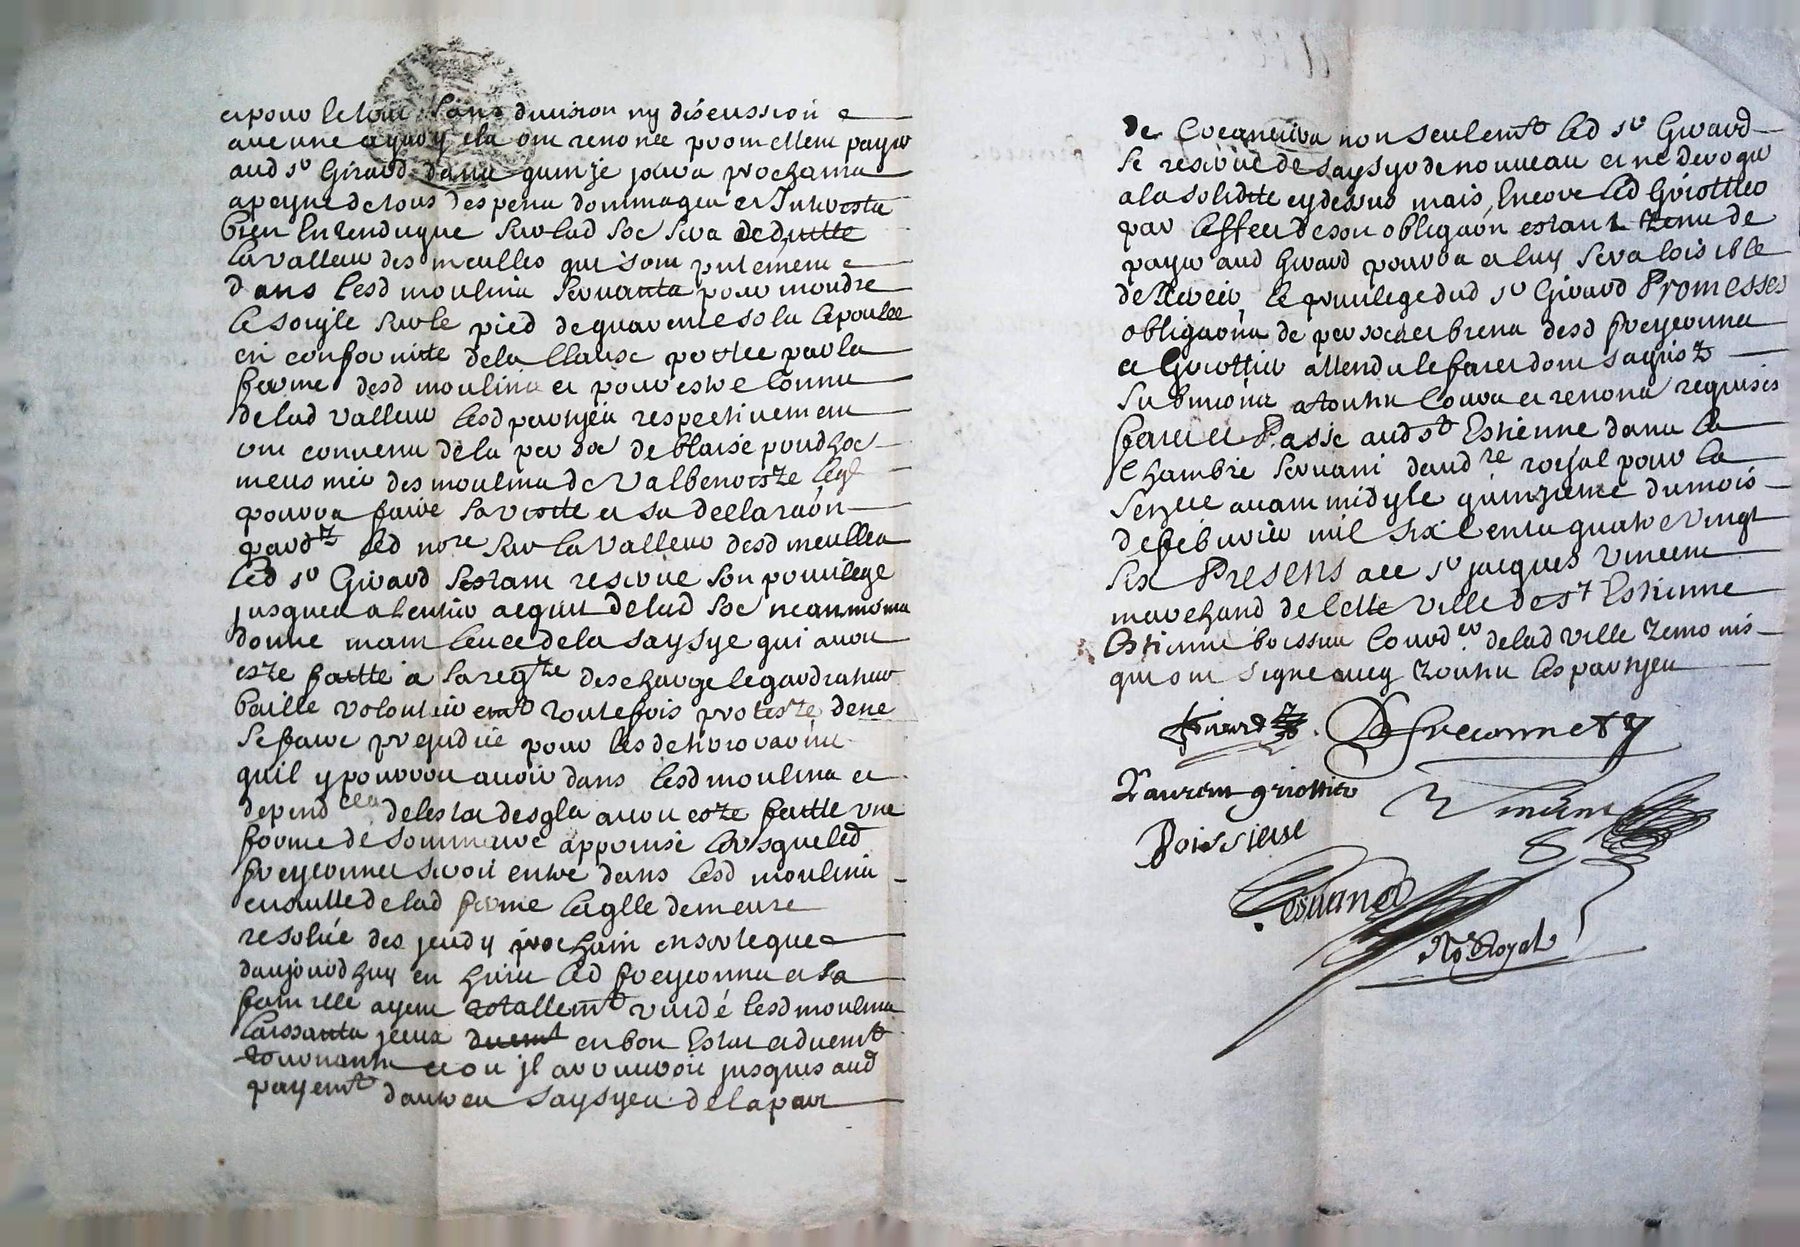 et pour le tout sans division ny discussion a
quoy ils ont renoncé promettent payer
aud sr Girard dans quinze jours prochains
a peyne de tous despens dommages et Interests
bien Entendu que sur lad soe sera deduitte
la valleur des meulles qui sont putement
dans lesd moulins servants pour moudre
le soigle sur le pied de quarente sols le poulce
en conformitte de la Clause portee par la
ferme desd moulins et pour estre Connu
de lad valleur lesd partyes respectivement
ont convenu de la per soe de blaise
meusnier des moulins de Valbenoiste leql
pourra faire sa visitte et sa declaraon
pard led nore sur la valleur desd meulles
led sr Girard sestant reservé son privilege
jusques a lentier acquit de lad soe neanmoins
donne main levee de la saysye qui avoit
este faitte a sa reqte descharge le gardiateur
baille volontairemt toutefois proteste de ne
se faire prejudice pour les deterioraons
quil y pourroit avoir dans lesd moulins et
depend ces de lestat desqls avoit este faitte une
forme de sommaire apprinse lorsque led
freyconnet seroit entré dans lesd moulins
ensuitte de lad ferme laqlle demeure
resoluë des jeudy prochain en sorte que
daujourdhuy en huict led freyconnet et sa
famille ayent totallemt vuidé lesd moulins
laissants jceux duemt en bon Estat et duemt
tournants et ou jl arriveroit jusques aud
payemt dautres saysyes de la part
de non seulemt led sr Girard
se reserve de saysyr de nouveau et ne deroger
a la solidite cy dessus mais Encore led Griottier
par leffect de son obligaon estant tenu de
payer aud Girard pourra et luy sera loisible
de le privilege dud sr Girard Promesses
obligaons de per soes et biens desd freyconnet
et Griottier attendu le faict dont sagist
submions a touttes Cours et renons requises
faict et Passé aud st Estienne dans la
Chambre servant dentre royal pour la
senye avant midy le quinzieme du mois
de febvrier mil six Cents quatre vingt
six Presens a ce sr jacques vincent
marchand de Cette ville de st Estienne
Estienne boissieu Courd er de lad ville temoins
qui ont signe avec touttes les partyes
Girard Freconnet
Laurent griottier Vincent
Boissieu

Nore Royal